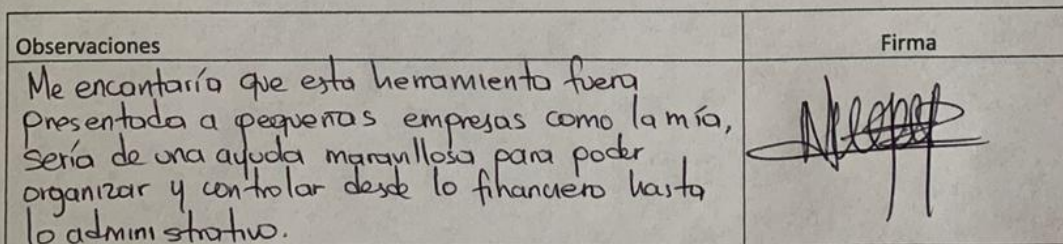 Observaciones
Firma
Me encantaría que esta herramienta fuera
presentada a pequeñas empresas como la mía,
sería de una ayuda maravillosa para poder
organizar y controlar desde lo financiero hasta
lo administrativo.